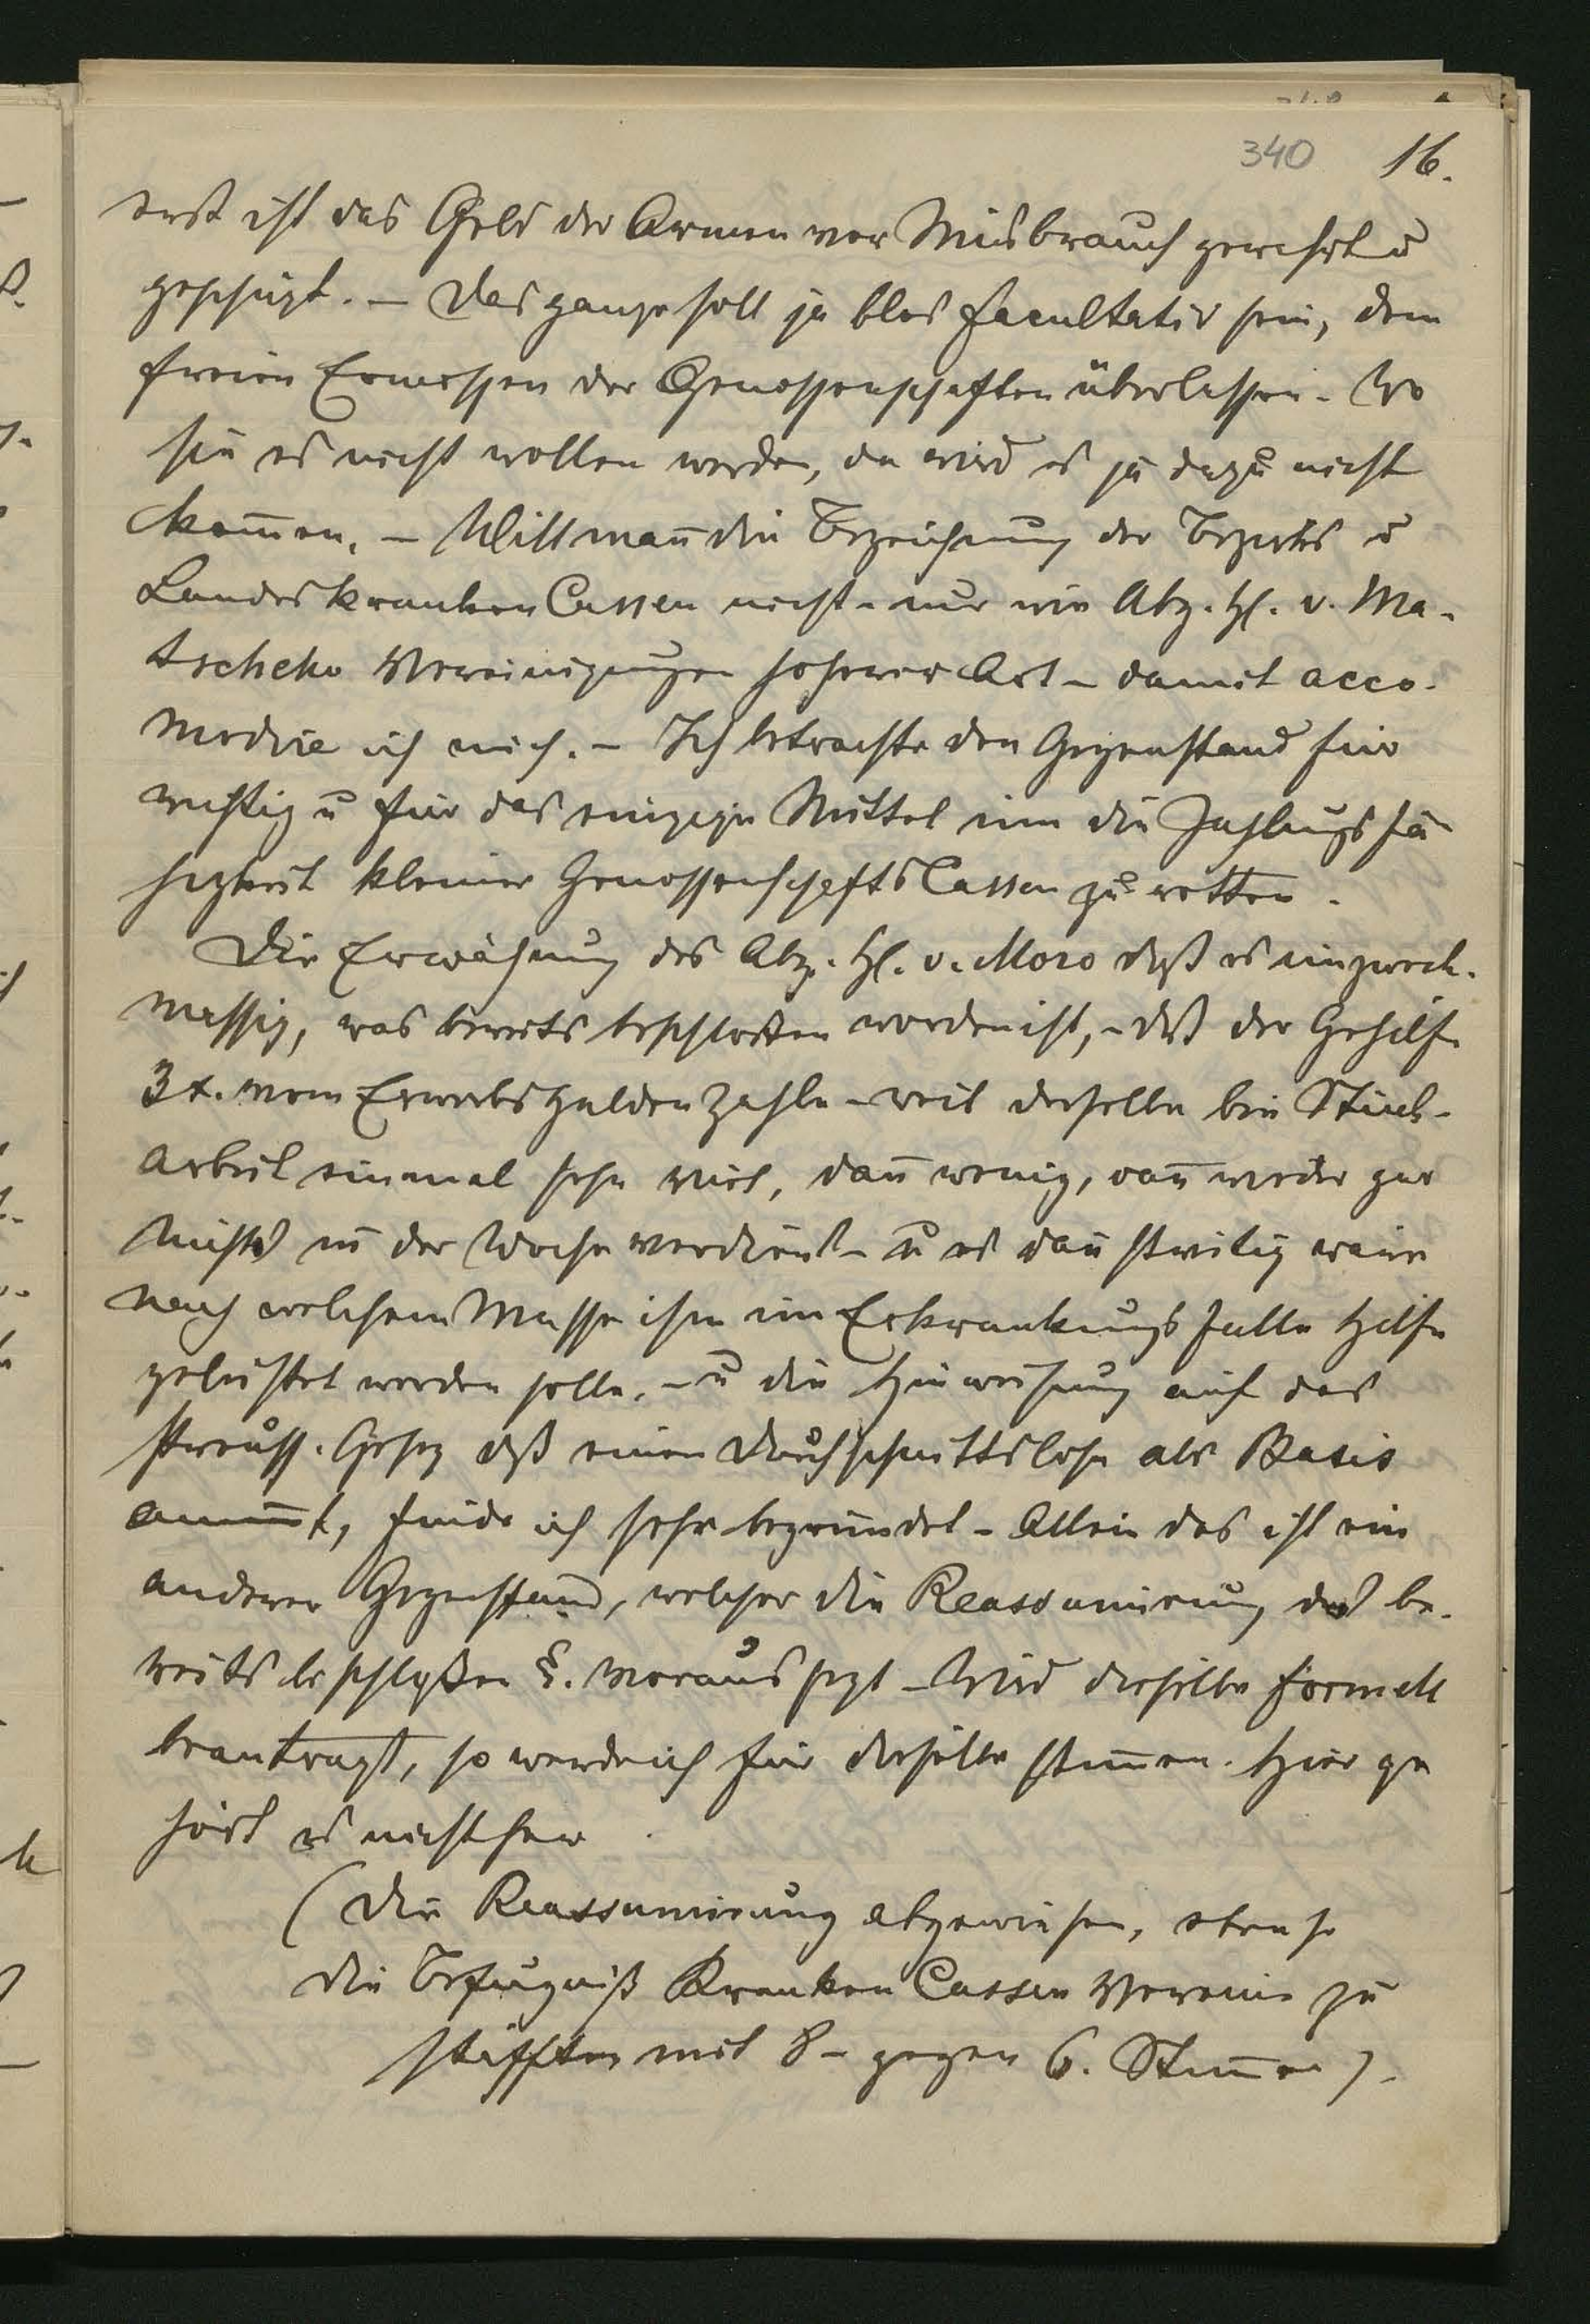 340 16.
erst ist das Geld der Armen vor Misbrauch gewahrt u
geschüzt. – Das ganze soll ja blos facultativ sein, dem
freien Ermessen der Genossenschaften überlassen. Wo
sie es nicht wollen werden, da wird es ja dazu nicht
kom̅en. – Will man̅ die Bezeichnung der Bezirks u
Landeskranken Cassen nicht – nur wie Abg. H. v. Ma-
tscheko Vereinigungen höherer Art – damit acco-
modire ich mich. – Ich betrachte den Gegenstand für
wichtig u für das einzige Mittel um die Zahlungsfä
higkeit kleiner Genossenschafts Cassen zu retten.
Die Erwähnung des Abg. H. v. Moro daß es unzweck-
massig, was bereits beschloßen worden ist, – daß der Gehilfe
3 x. vom Erwerbsgulden zahle – weil derselbe bei Stück-
arbeit einmal sehr viel, dan̅ wenig, dan̅ wieder gar
nichts in der Woche verdient – u es dan̅ streitig wäre
nach welchem Masse ihm im Erkrankungsfalle Hilfe
geleistet werden solle, – u die Hinweisung auf das
preuss. Gesez daß einen Durchschnittslohn als Basis
annim̅t, finde ich sehr begründet – Allein das ist ein
anderer Gegenstand, welcher die Reassumirung des be-
reits beschloßen §. voraus sezt – Wird dieselbe formell
beantragt, so werde ich für dieselbe stim̅en. Hier ge
hört es nicht her.
(Die Reassumirung abgewiesen, ebenso
die Befugniß Kranken Cassen Vereine zu
stifften mit 8 – gegen 6. Stim̅en).